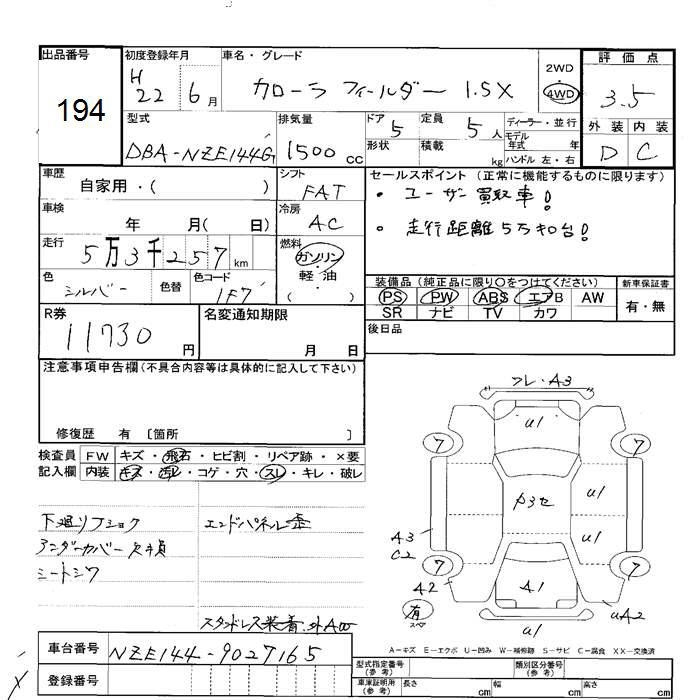 出品番号
194
初度登録年月
H
22 6 月
車名・グレード
カローラ フィールダー 1.5X
2WD
4WD
評価点
3.5
外装 内装
D C
型式
DBA-NZE144G
排気量
1500 cc
ドア
5
定員
5 人
形状
積載
kg
ディーラー・並行
モデル
年式 年
ハンドル 左・右
車歴
自家用・( )
シフト
FAT
セールスポイント (正常に機能するものに限ります)
・ ユーザー買取車!
・ 走行距離5万キロ台!
車検
年 月( 日)
冷房
AC
走行
5万3千257km
燃料
ガソリン
・
軽・油
( )
色
シルバー
色替
色コード
1F7
装備品 (純正品に限り○をつけてください)
PS PW ABS エアB AW
SR ナビ TV カワ
新車保証書
有・無
R券
11730 円
名変通知期限
月 日
後日品
注意事項申告欄(不具合内容等は具体的に記入して下さい)
修復歴 有 〔箇所 〕
検査員
記入欄
FW キズ・飛石・ヒビ割・リペア跡・×要
内装 キズ・汚レ・コゲ・穴・スレ・キレ・破レ
下廻りフショク
アンダーカバー欠損
シートシワ
エンドパネル歪
スタッドレス装着
フレ・A3
U1
7
7
U1
U1
A3
C2
7
7
A2
A1
有
スペア
UA2
U1
A-キズ E-エクボ U-凹み W-補修跡 S-サビ C-腐食 XX-交換済
車台番号
NZE144-9027165
登録番号
型式指定番号
(参考)
類別区分番号
(参考)
車庫証明用
(参考)
長さ
cm
幅
cm
高さ
cm